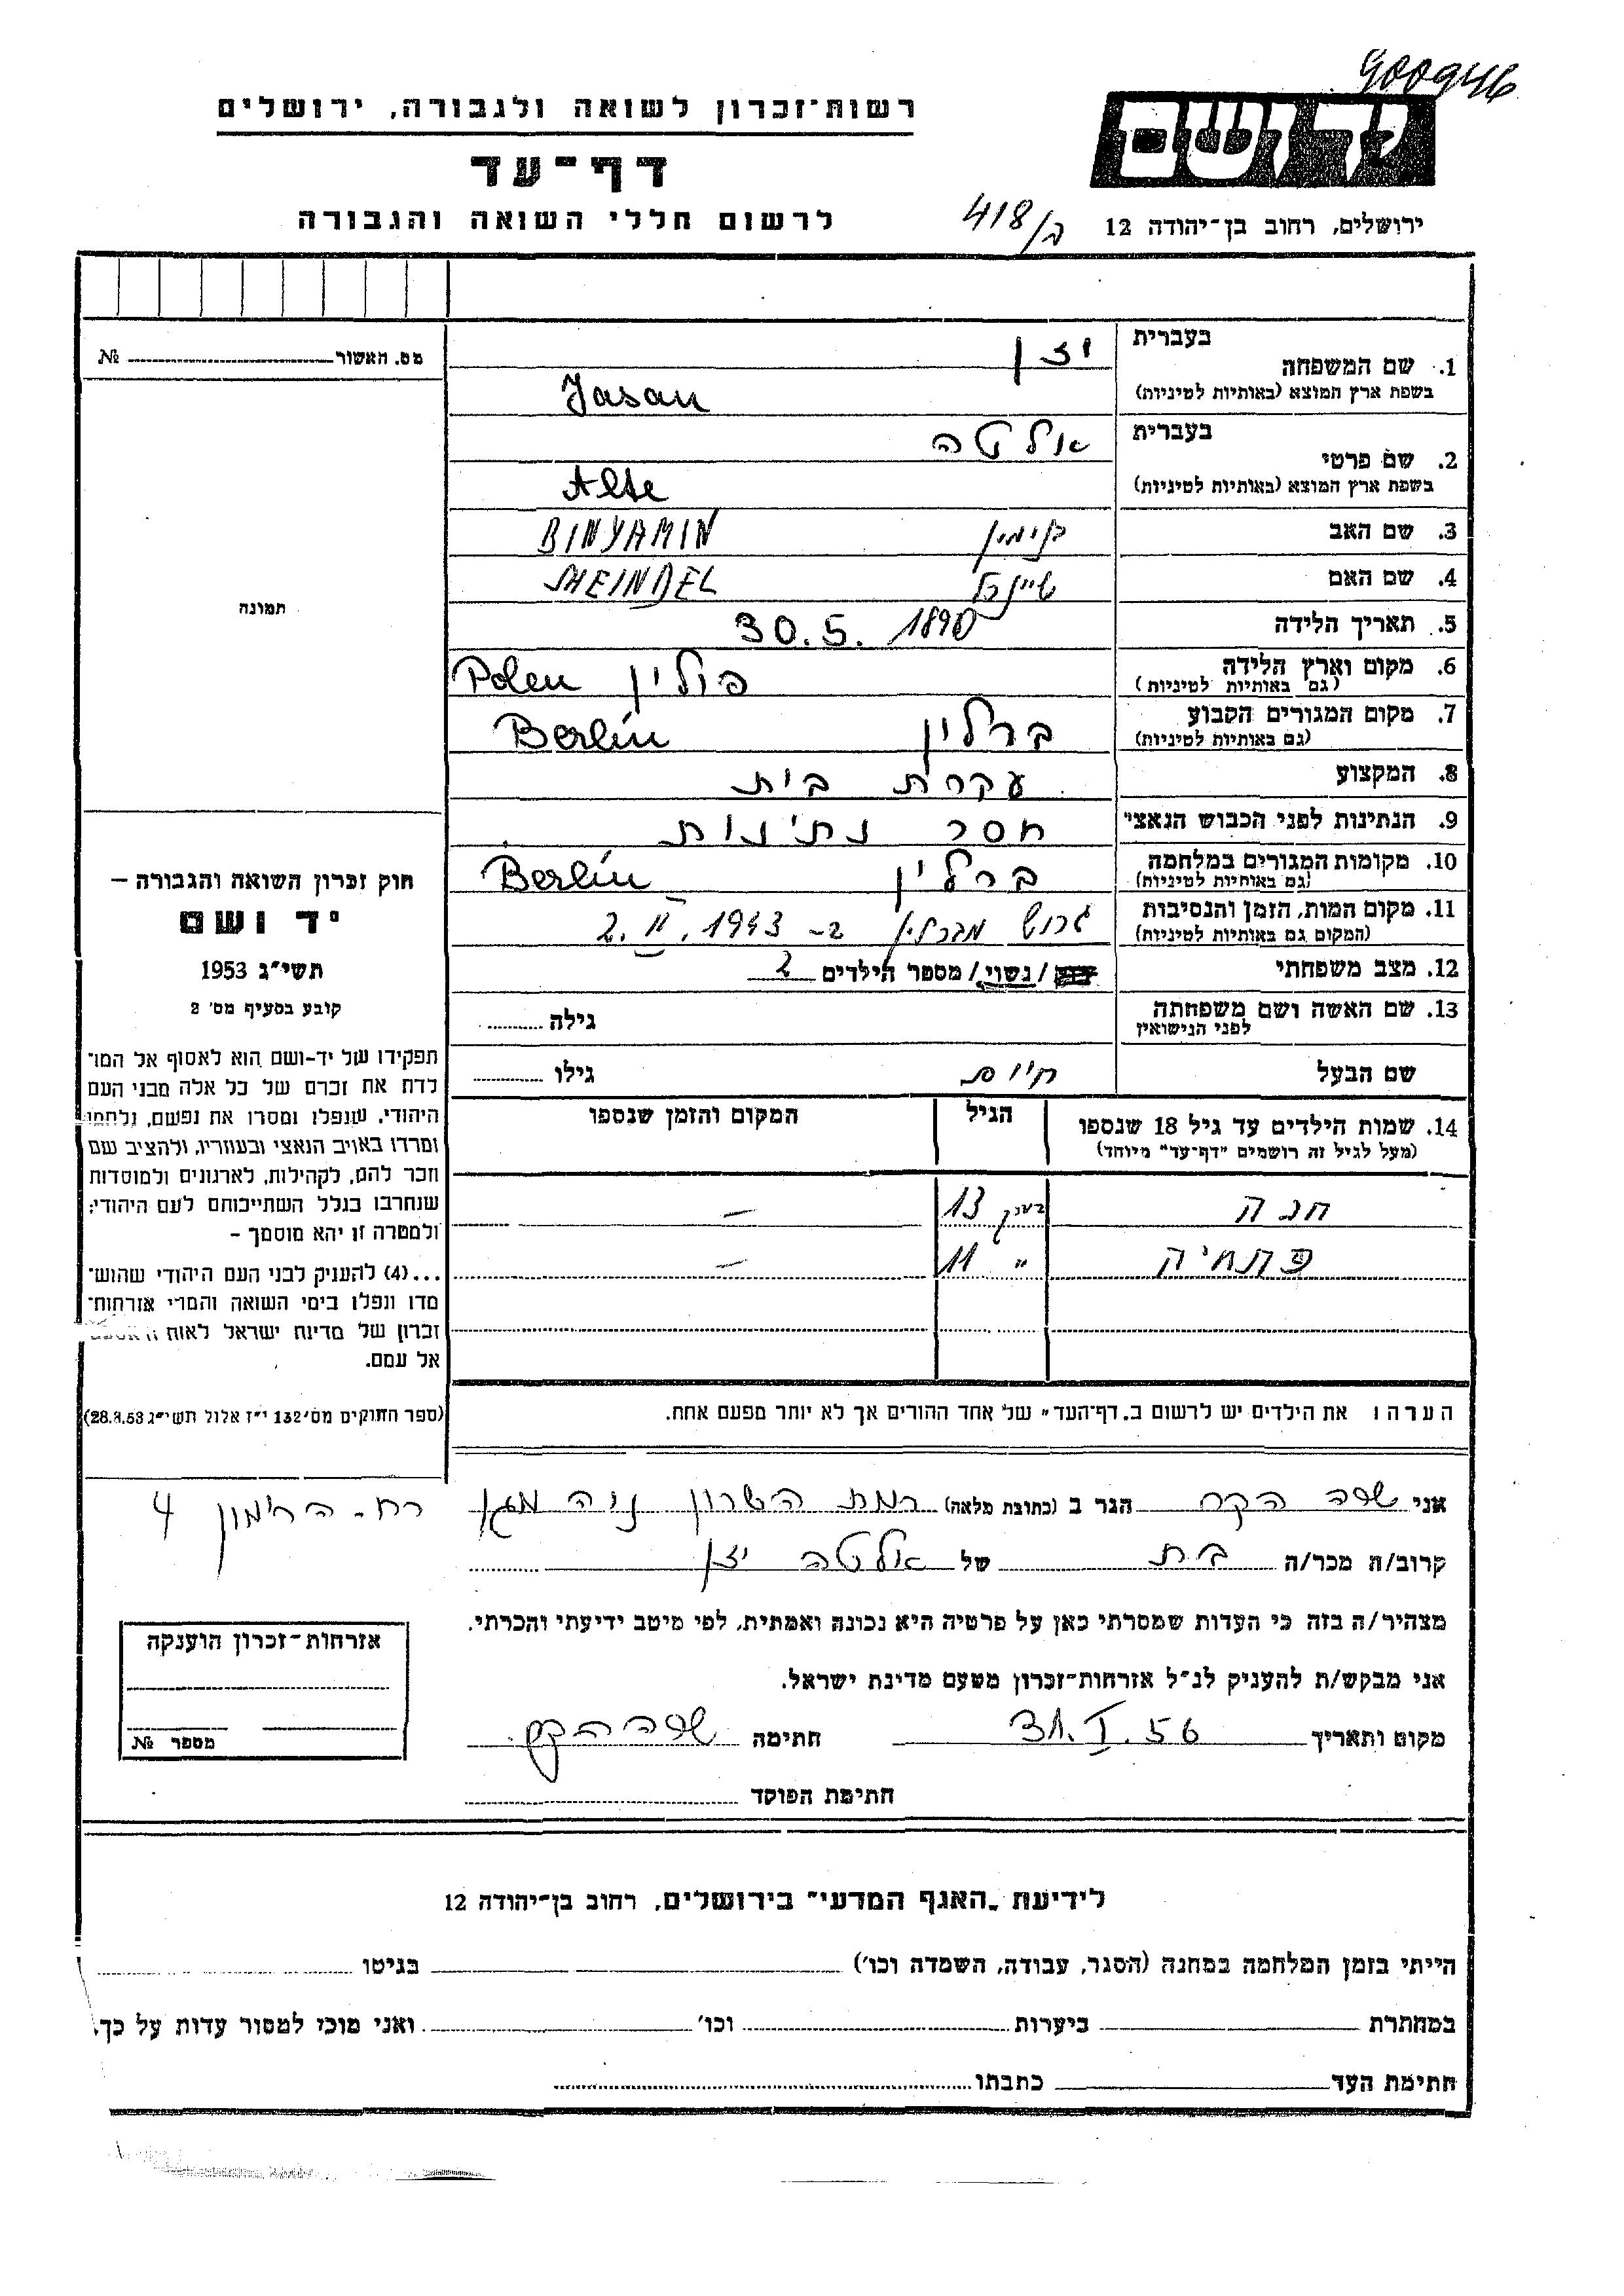 900946
רשות־זכרון לשואה ולגבורה, ירושלים
דף־עד
לרשום חללי השואה והגבורה
יד ושם
ירושלים, רחוב בן־יהודה 12
418/ה
מס. האשור № 
1. שם המשפחה בעברית יזן
בשפת ארץ המוצא (באותיות לטיניות) Jasan
2. שם פרטי בעברית אלטה
בשפת ארץ המוצא (באותיות לטיניות) Alte
3. שם האב בנימין BINYAMIN
4. שם האם שיינדל SHEINDEL
5. תאריך הלידה 30.5.1890
6. מקום וארץ הלידה (גם באותיות לטיניות) פולין Polen
7. מקום המגורים הקבוע (גם באותיות לטיניות) ברלין Berlin
8. המקצוע עקרת בית
9. הנתינות לפני הכבוש הנאצי חסר נתינות
10. מקומות המגורים במלחמה (גם באותיות לטיניות) ברלין Berlin
11. מקום המות, הזמן והנסיבות (המקום גם באותיות לטיניות) גרוש מברלין ב- 2.II.1943
12. מצב משפחתי / נשוי / מספר הילדים 2
13. שם האשה ושם משפחתה לפני הנישואין גילה
שם הבעל גילו
14. שמות הילדים עד גיל 18 שנספו הגיל המקום והזמן שנספו
(מעל לגיל זה רושמים "דף־עד" מיוחד)
חנה 13 –
פתחיה " 11 –
הערה: את הילדים יש לרשום ב„דף־העד" של אחד ההורים אך לא יותר מפעם אחת.
תמונה
חוק זכרון השואה והגבורה –
יד ושם
תשי"ג 1953
קובע בסעיף מס' 2
תפקידו של יד־ושם הוא לאסוף אל המו־
לדת את זכרם של כל אלה מבני העם
היהודי, שנפלו ומסרו את נפשם, נלחמו
ומרדו באויב הנאצי ובעוזריו, ולהציב שם
וזכר להם, לקהילות, לארגונים ולמוסדות
שנחרבו בגלל השתייכותם לעם היהודי;
ולמטרה זו יהא מוסמך –
...(4) להעניק לבני העם היהודי שהוש־
מדו ונפלו בימי השואה והמרי אזרחות־
זכרון של מדינת ישראל לאות האספם
אל עמם.
(ספר החוקים מס' 132 י"ז אלול תשי"ג 28.8.53)
אני שרה הקר הגר ב (כתובת מלאה) רמת השרון נוה מגן רח- הרימון 4
קרוב/ה מכר/ה בת של אלטה יזן
מצהיר/ה בזה כי העדות שמסרתי כאן על פרטיה היא נכונה ואמתית, לפי מיטב ידיעתי והכרתי.
אני מבקש/ת להעניק לנ"ל אזרחות־זכרון מטעם מדינת ישראל.
מקום ותאריך 31.I.56 חתימה שרה הקר
חתימת הפוקד
אזרחות־זכרון הוענקה
מספר №
לידיעת „האגף המדעי" בירושלים, רחוב בן־יהודה 12
הייתי בזמן המלחמה במחנה (הסגר, עבודה, השמדה וכו') בגיטו
במחתרת ביערות וכו' ואני מוכן למסור עדות על כך.
חתימת העד כתבתו